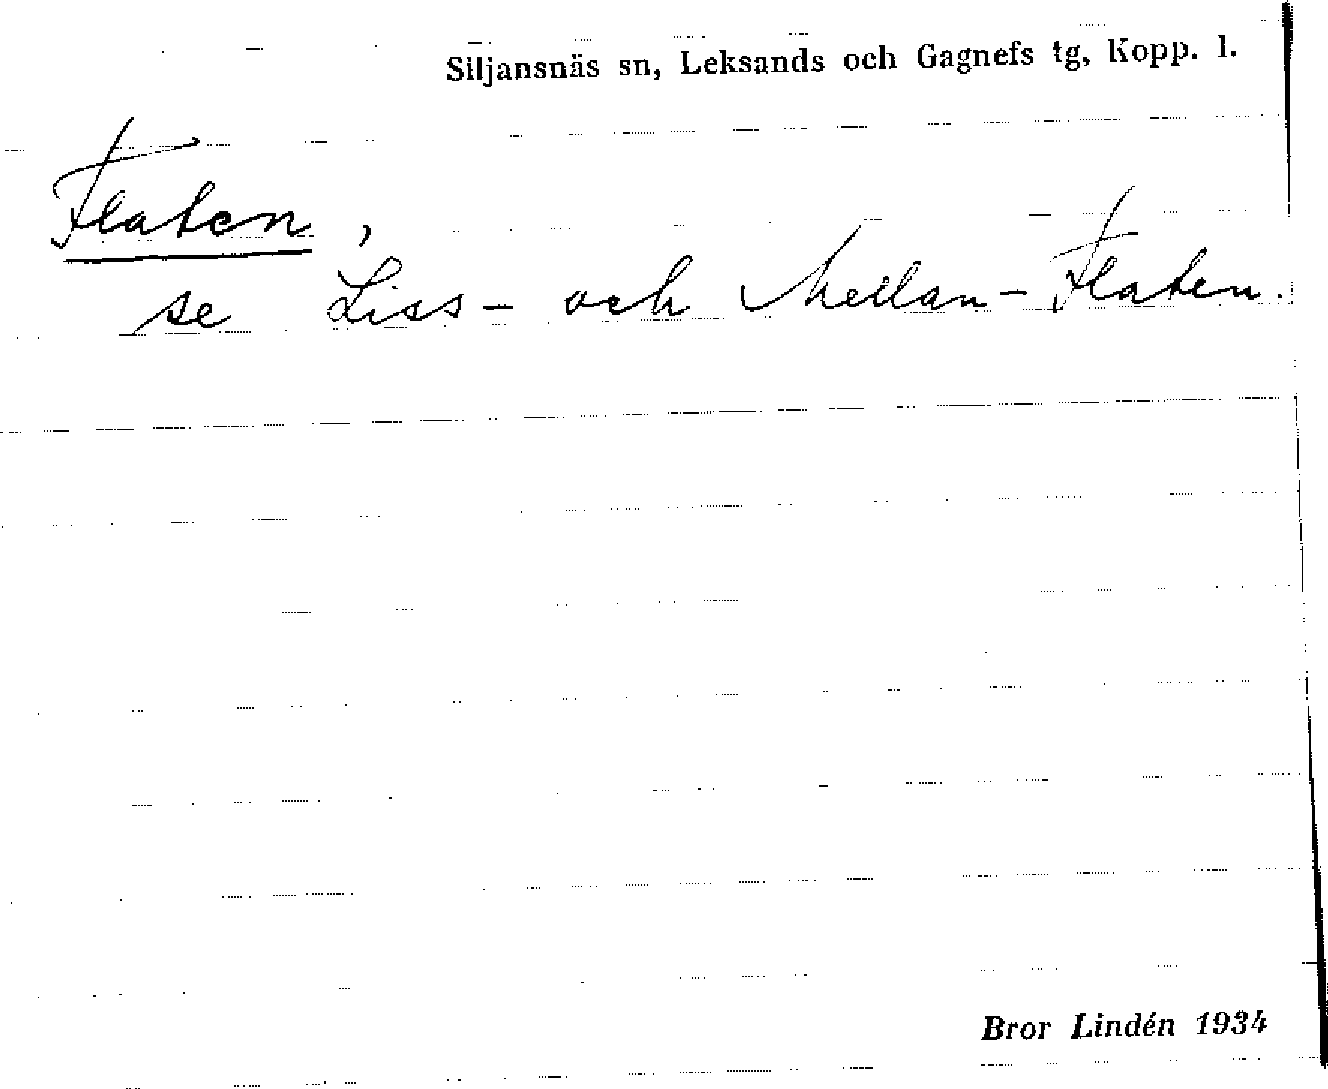 Siljansnäs sn, Leksands och Gagnefs tg, Kopp. l.
Flaten,
se Liss- och Mellan-Flaten.
Bror Lindén 1934